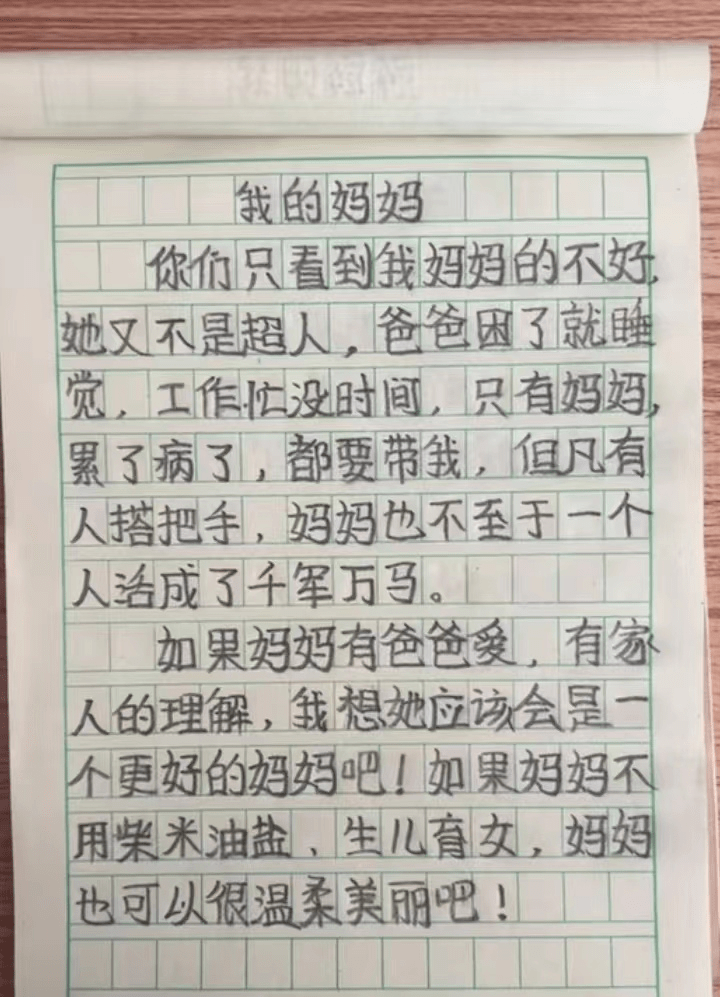 我的妈妈
你们只看到我妈妈的不好,
她又不是超人，爸爸困了就睡
觉，工作忙没时间，只有妈妈,
累了病了，都要带我，但凡有
人搭把手，妈妈也不至于一个
人活成了千军万马。
如果妈妈有爸爸爱，有家
人的理解，我想她应该会是一
个更好的妈妈吧！如果妈妈不
用柴米油盐、生儿育女，妈妈
也可以很温柔美丽吧！